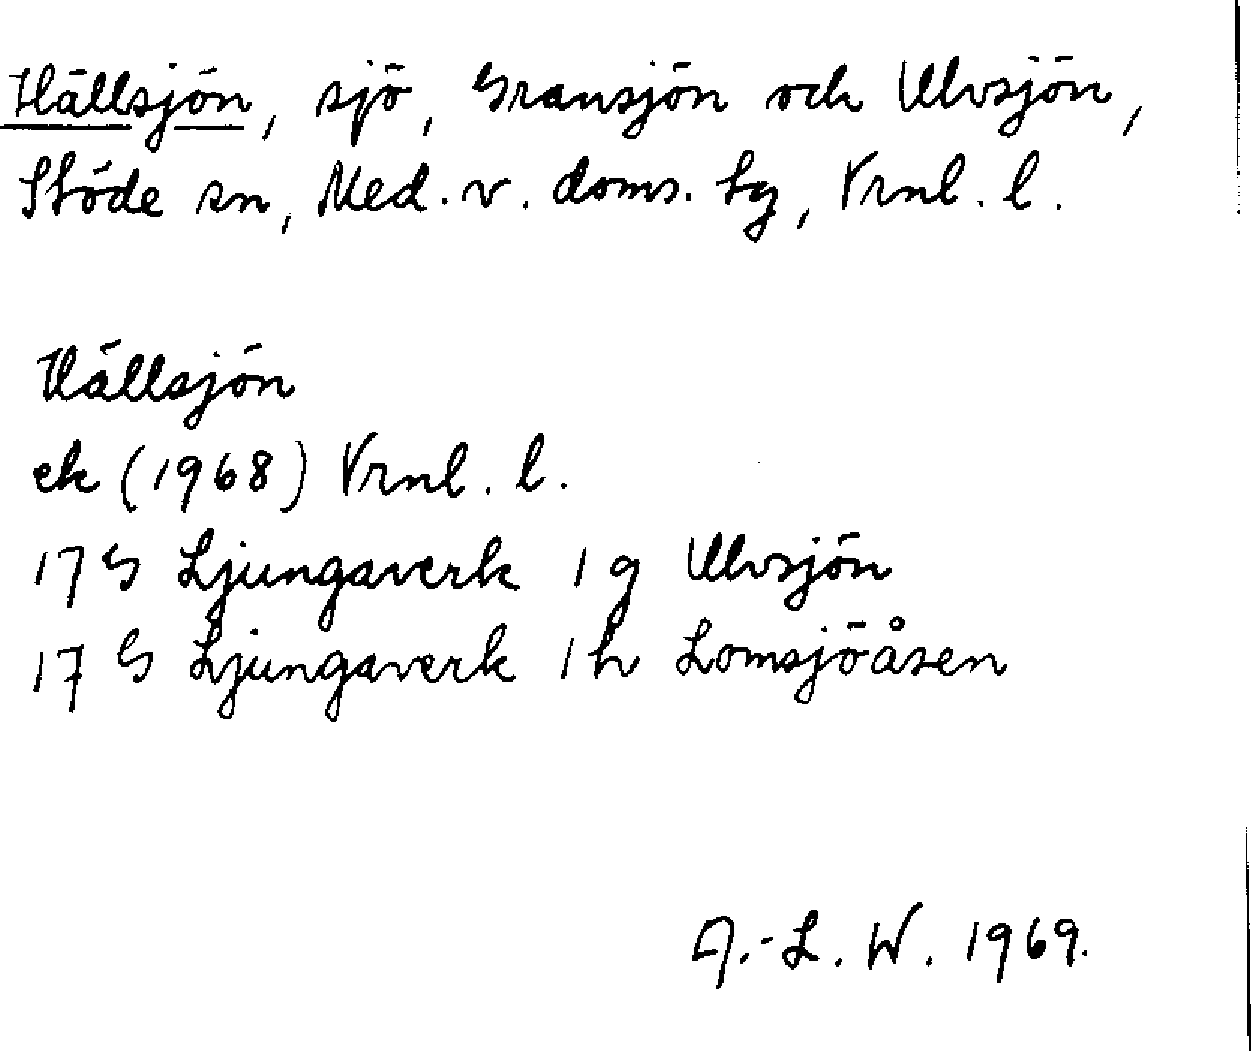 Hällsjön, sjö, Gransjön och Ulvsjön,
Stöde sn, Med. v. doms. tg, Vrnl. l.
Hällsjön
ek (1968) Vrnl. l.
17 G Ljungaverk 1 g Ulvsjön
17 G Ljungaverk 1 h Lomsjöåsen
A.-L. W. 1969.